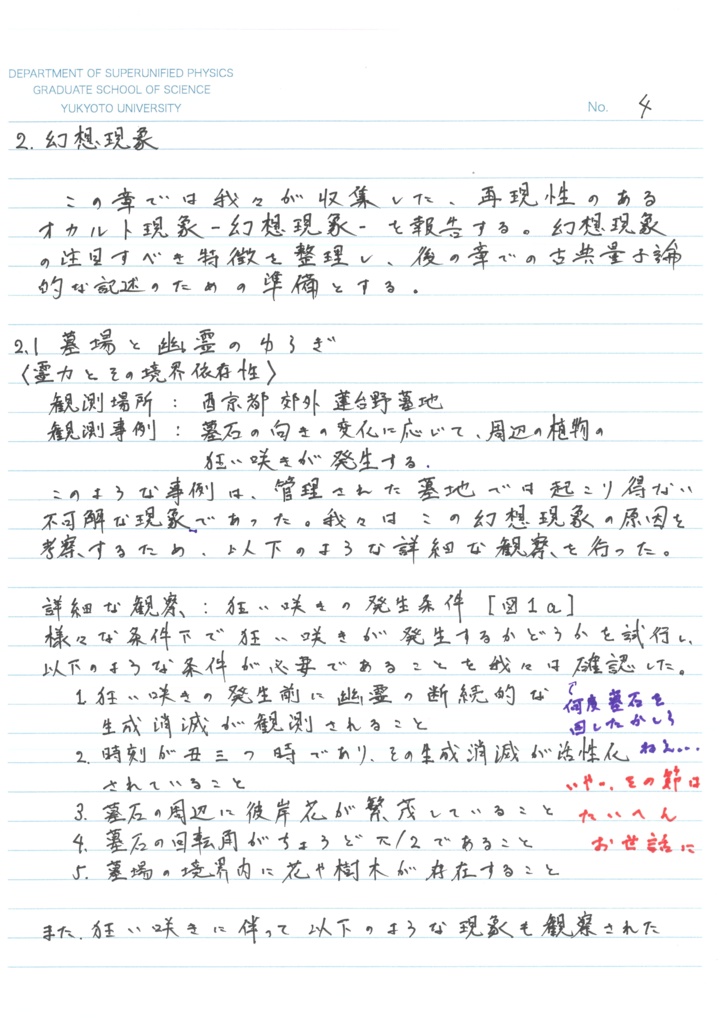 DEPARTMENT OF SUPERUNIFIED PHYSICS
GRADUATE SCHOOL OF SCIENCE
YUKYOTO UNIVERSITY
No. 4
2. 幻想現象
この章では我々が収集した、再現性のある
オカルト現象-幻想現象-を報告する。幻想現象
の注目すべき特徴を整理し、後の章での古典量子論
的な記述のための準備とする.
2.1 墓場と幽霊のゆらぎ
〈霊力とその境界依存性〉
観測場所: 酉京都 郊外 蓮台野墓地
観測事例: 墓石の向きの変化に応じて、周辺の植物の
狂い咲きが発生する.
このような事例は、管理された墓地では起こり得ない
不可解な現象であった。我々はこの幻想現象の原因を
考察するため、以下のような詳細な観察を行った。
詳細な観察: 狂い咲きの発生条件 [図1a]
様々な条件下で狂い咲きが発生するかどうかを試行し、
以下のような条件が必要であることを我々は確認した。
1. 狂い咲きの発生前に幽霊の断続的な
生成消滅が観測されること
2. 時刻が丑三つ時であり、その生成消滅が活性化
されていること
3. 墓石の周辺に彼岸花が繁茂していること
4. 墓石の回転角がちょうどπ/2であること
5. 墓場の境界内に花や樹木が存在すること
何度墓石を
回したかしら
ねえ...
いやー、その節は
たいへん
お世話に
また、狂い咲きに伴って以下のような現象も観察された